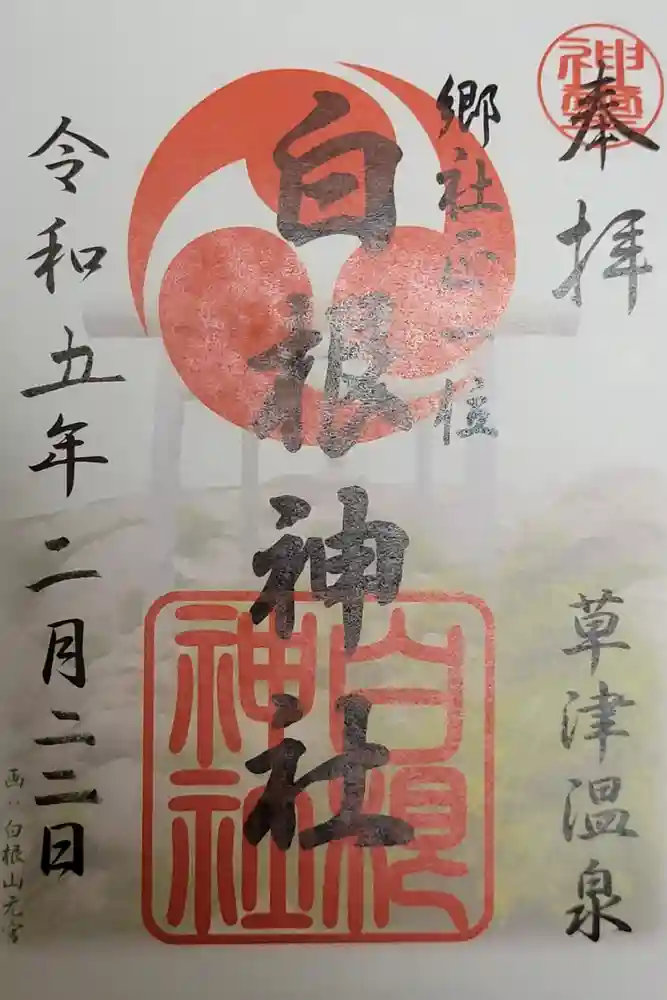 奉拝
草津温泉
郷社正一位
白根神社
白根
神社
令和五年二月二二日
画:白根山元宮